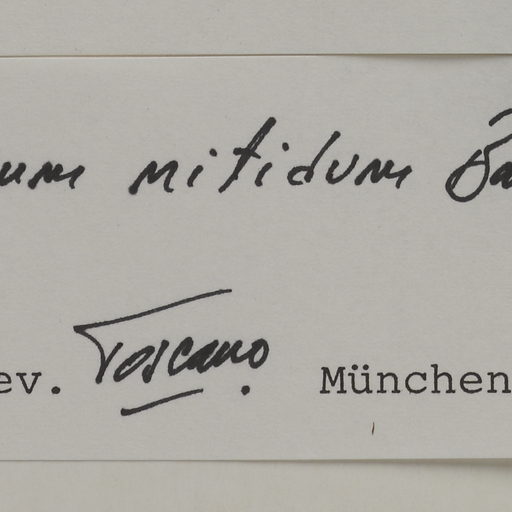 um nitidum Ba
ev. Toscano. München